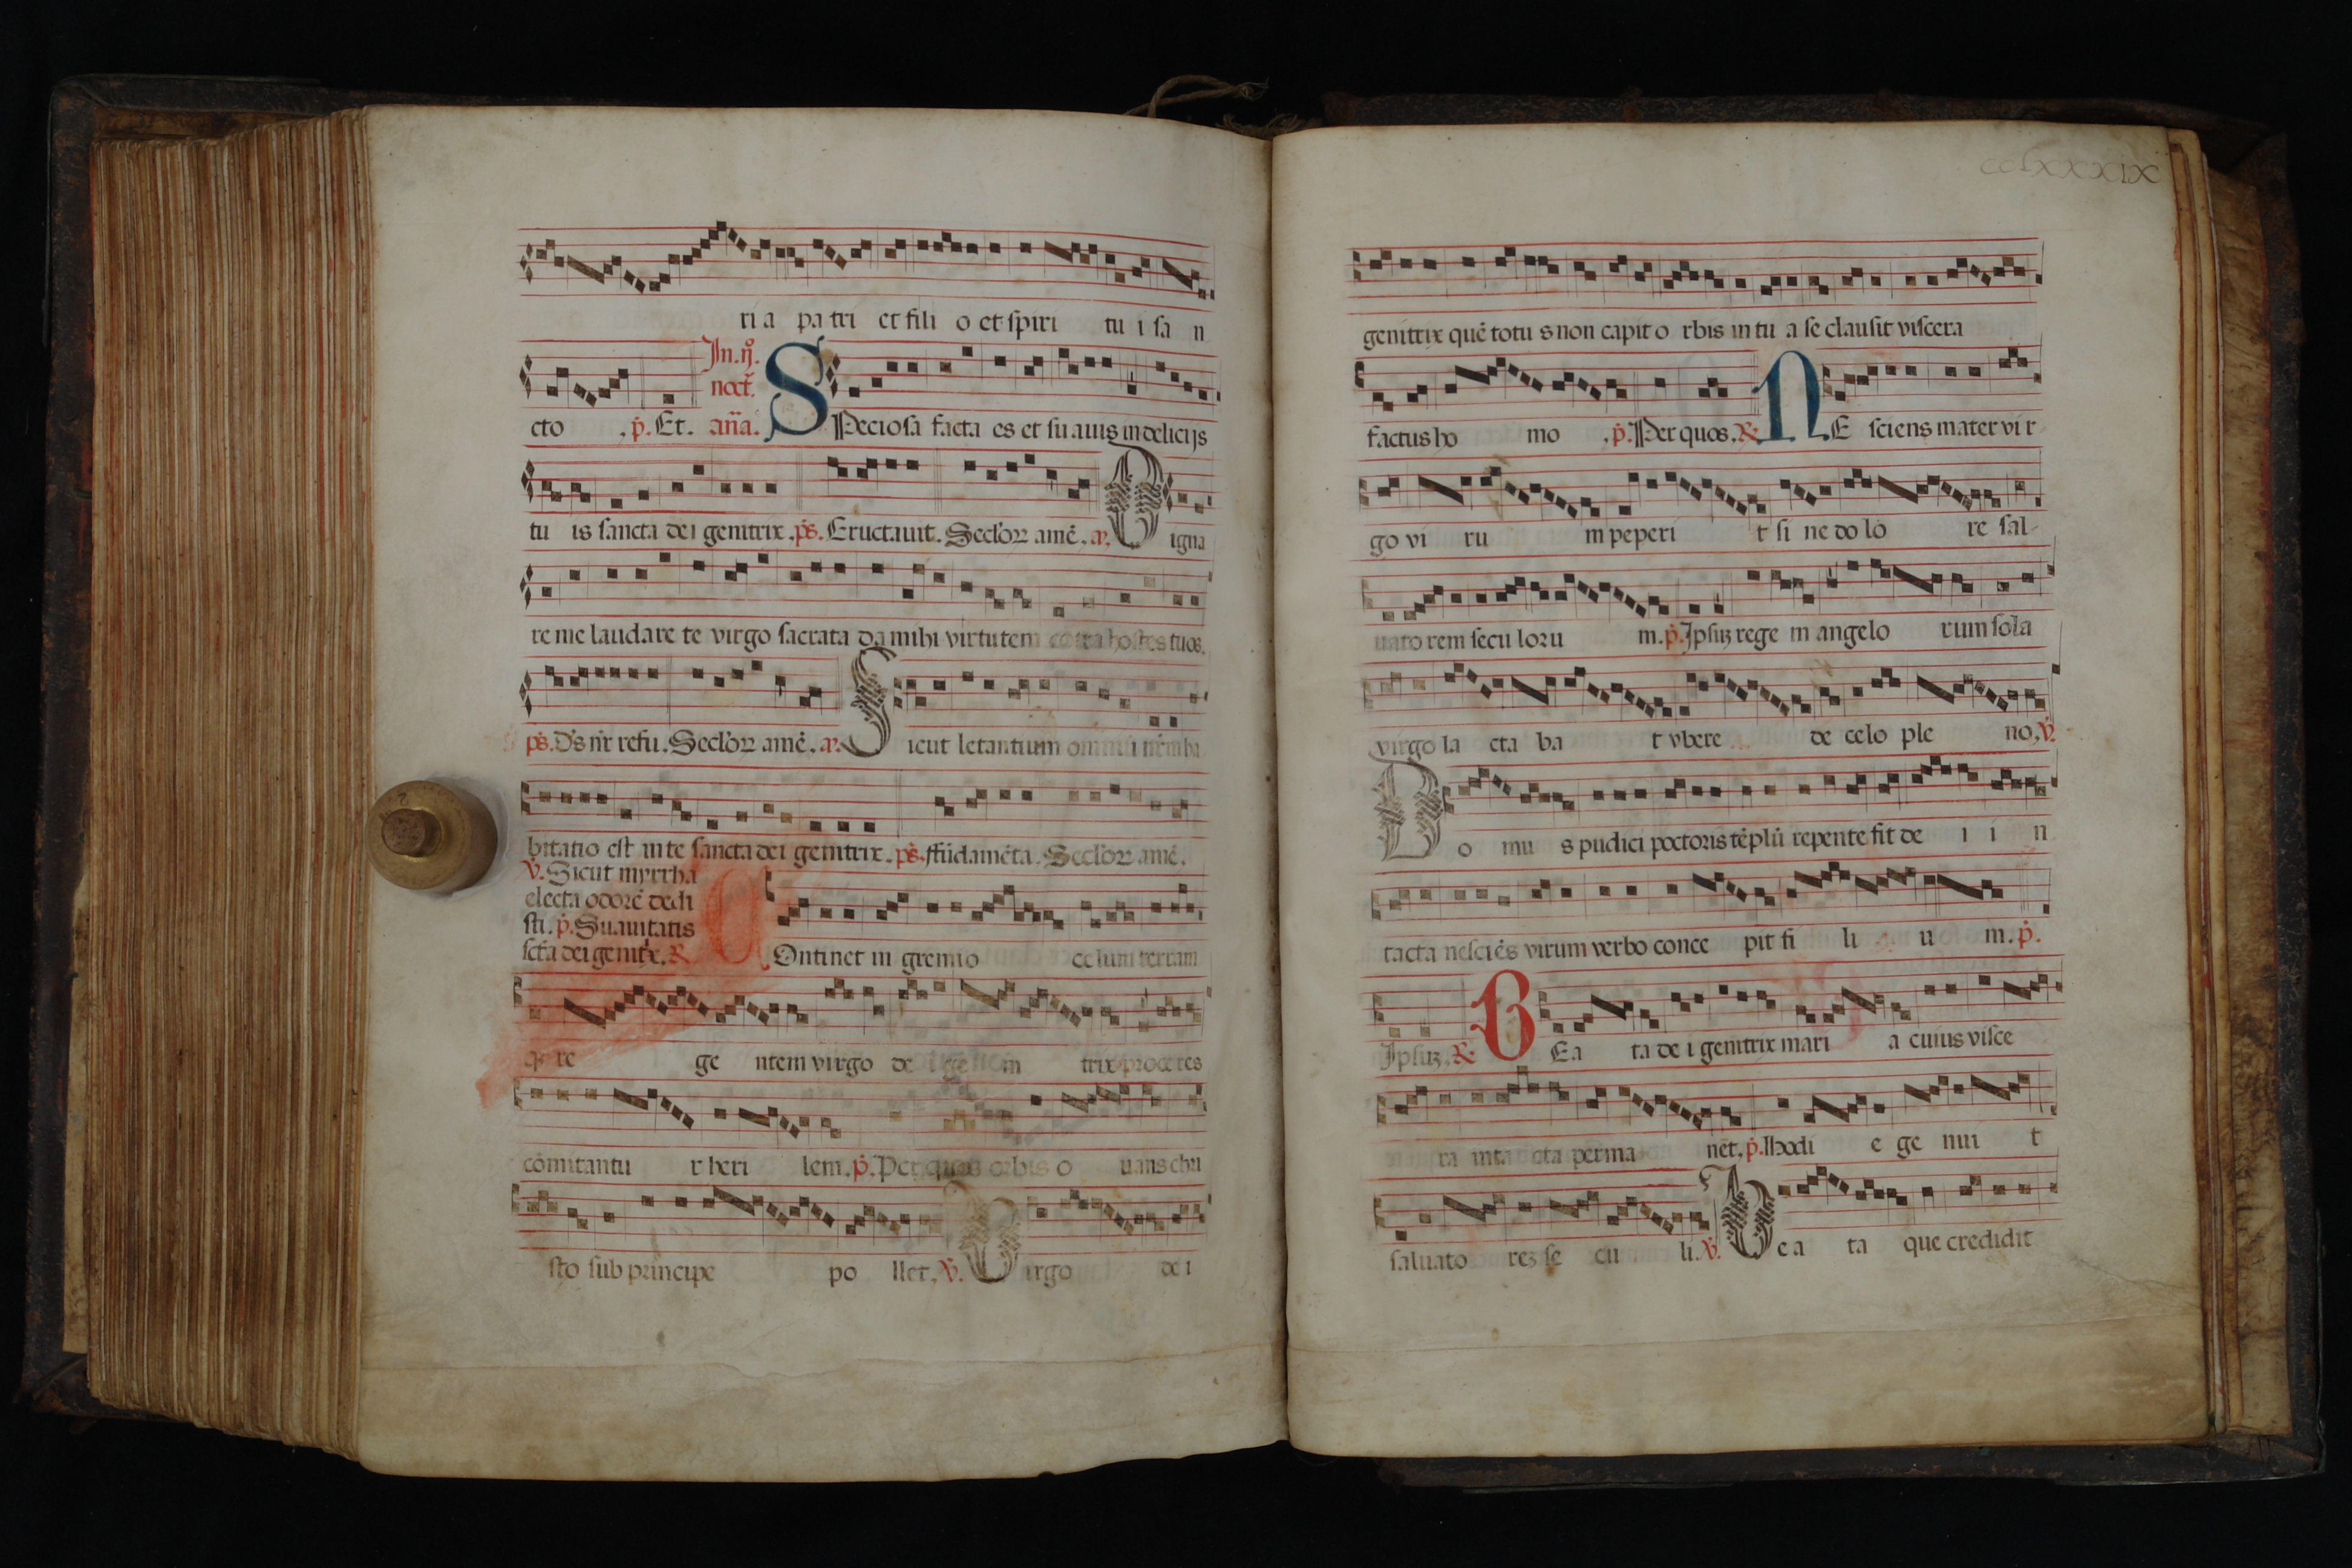 ri a pa tri et fili o et spiri tu i sa n
In.ij.
noct̄.
cto .p̄. Et. an̄a. SPeciosa facta es et suauis in delicijs
tu is sancta dei genitrix. ps̄. Eructauit. Seclōꝝ amē. a. Digna
re me laudare te virgo sacrata da mihi virtutem contra hostes tuos.
ps̄. Dn̄s n̄r refu. Seclōꝝ amē. a. Sicut letantium omniū nr̄m ha
bitatio est in te sancta dei genitrix. ps̄. ffūdamēta. Seclōꝝ amē.
℣. Sicut myrrha
electa odorē dedi
sti. p̄. Suauitatis
sctā dei genitx̄. ℟ COntinet in gremio celum terram
qꝫ re ge ntem virgo de i ge ni trix proceres
cōmitantu r heri lem. p̄. Per quos orbis o uans chri
sto sub principe po llet. ℣. Virgo de i
cclxxxix
genitrix quē totu s non capit o rbis in tu a se clausit viscera
factus ho mo .p̄. Per quos. ℟. NE sciens mater vi r
go vi ru m peperi t si ne do lo re sal-
uato rem secu loru m. p̄. Ipsuꝫ rege m angelo rum sola
virgo la cta ba t vbere de celo ple no. ℣.
Do mu s pudici pectoris tēplū repente fit de i i n
tacta nesciēs virum verbo conce pit fi li u m. p̄.
Ipsuꝫ. ℟. BEa ta de i genitrix mari a cuius visce
ra inta cta perma nēt. p̄. Hodi e ge nui t
saluato reꝫ se cu li. ℣. Bea ta que credidit